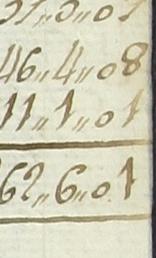 46〃4〃08
11〃1〃01
62〃6〃01